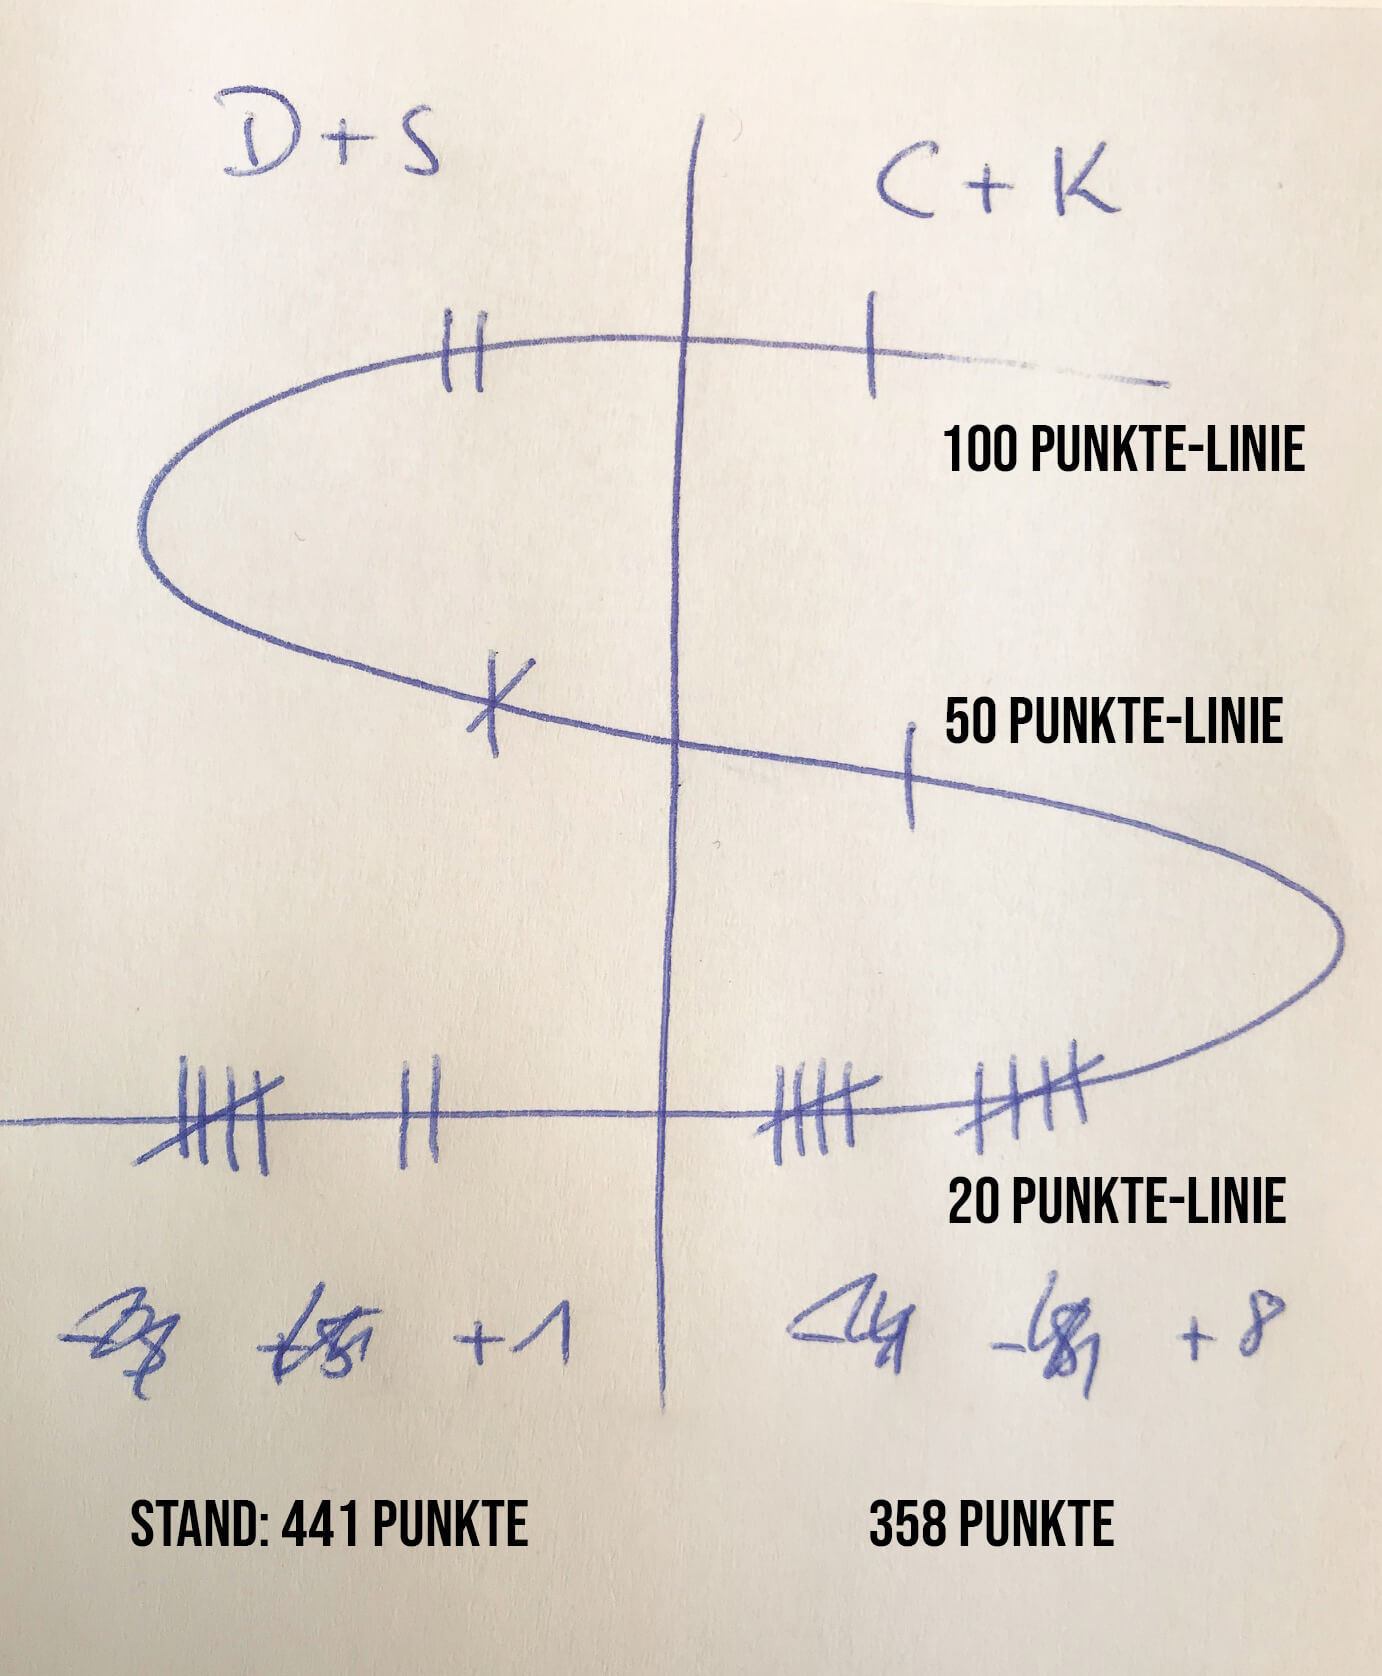 D + S
C + K
100 PUNKTE-LINIE
50 PUNKTE-LINIE
20 PUNKTE-LINIE
+ 1
+ 8
STAND: 441 PUNKTE
358 PUNKTE